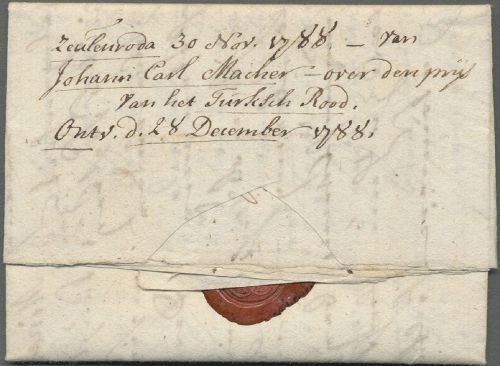 Zeulenroda 30 Nov. 1788. – van
Johann Carl Macher – over den prijs
van het Turksch Rood.
Ontv. d. 28 December 1788.